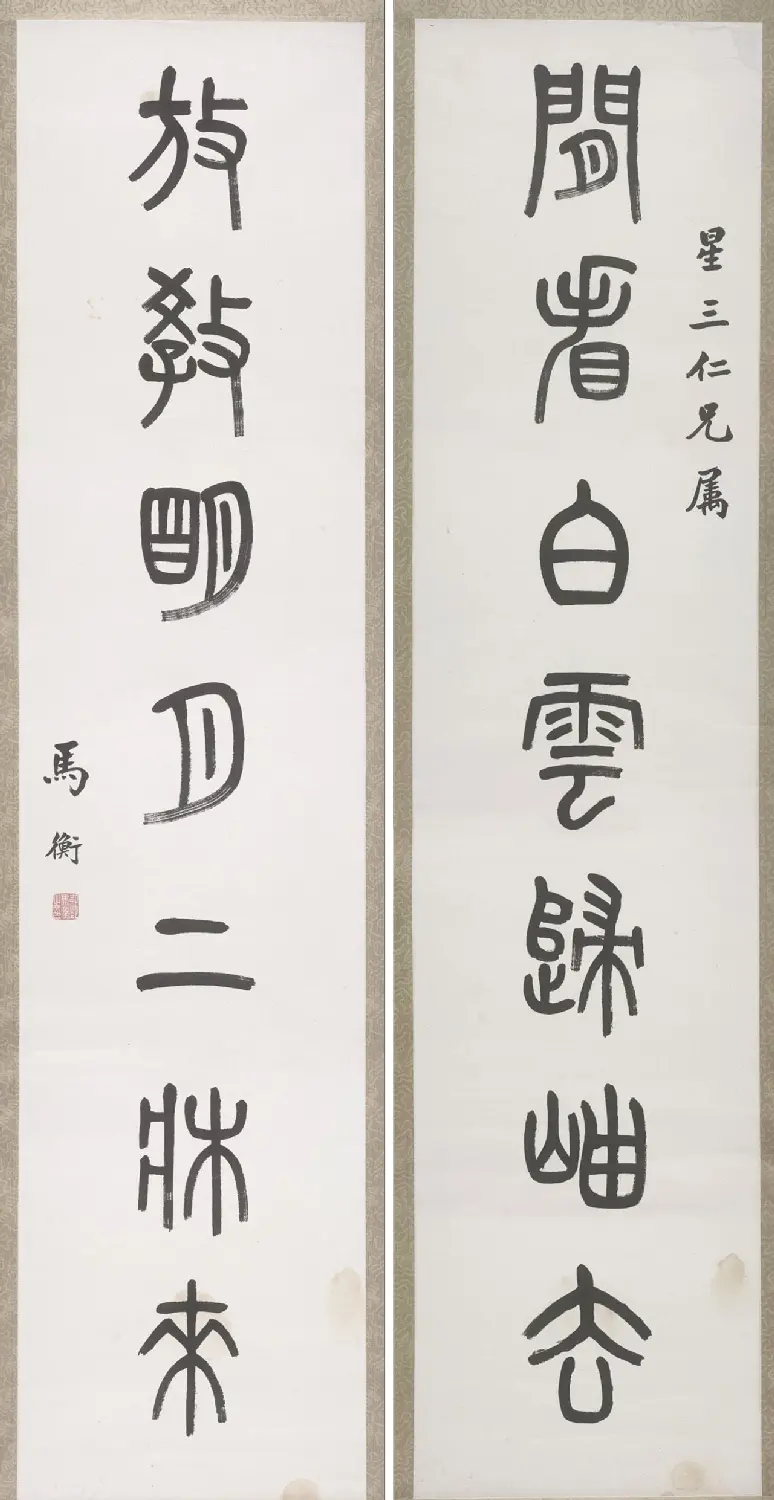 星三仁兄属
閒看白雲歸岫去
放教明月上牀來
馬衡